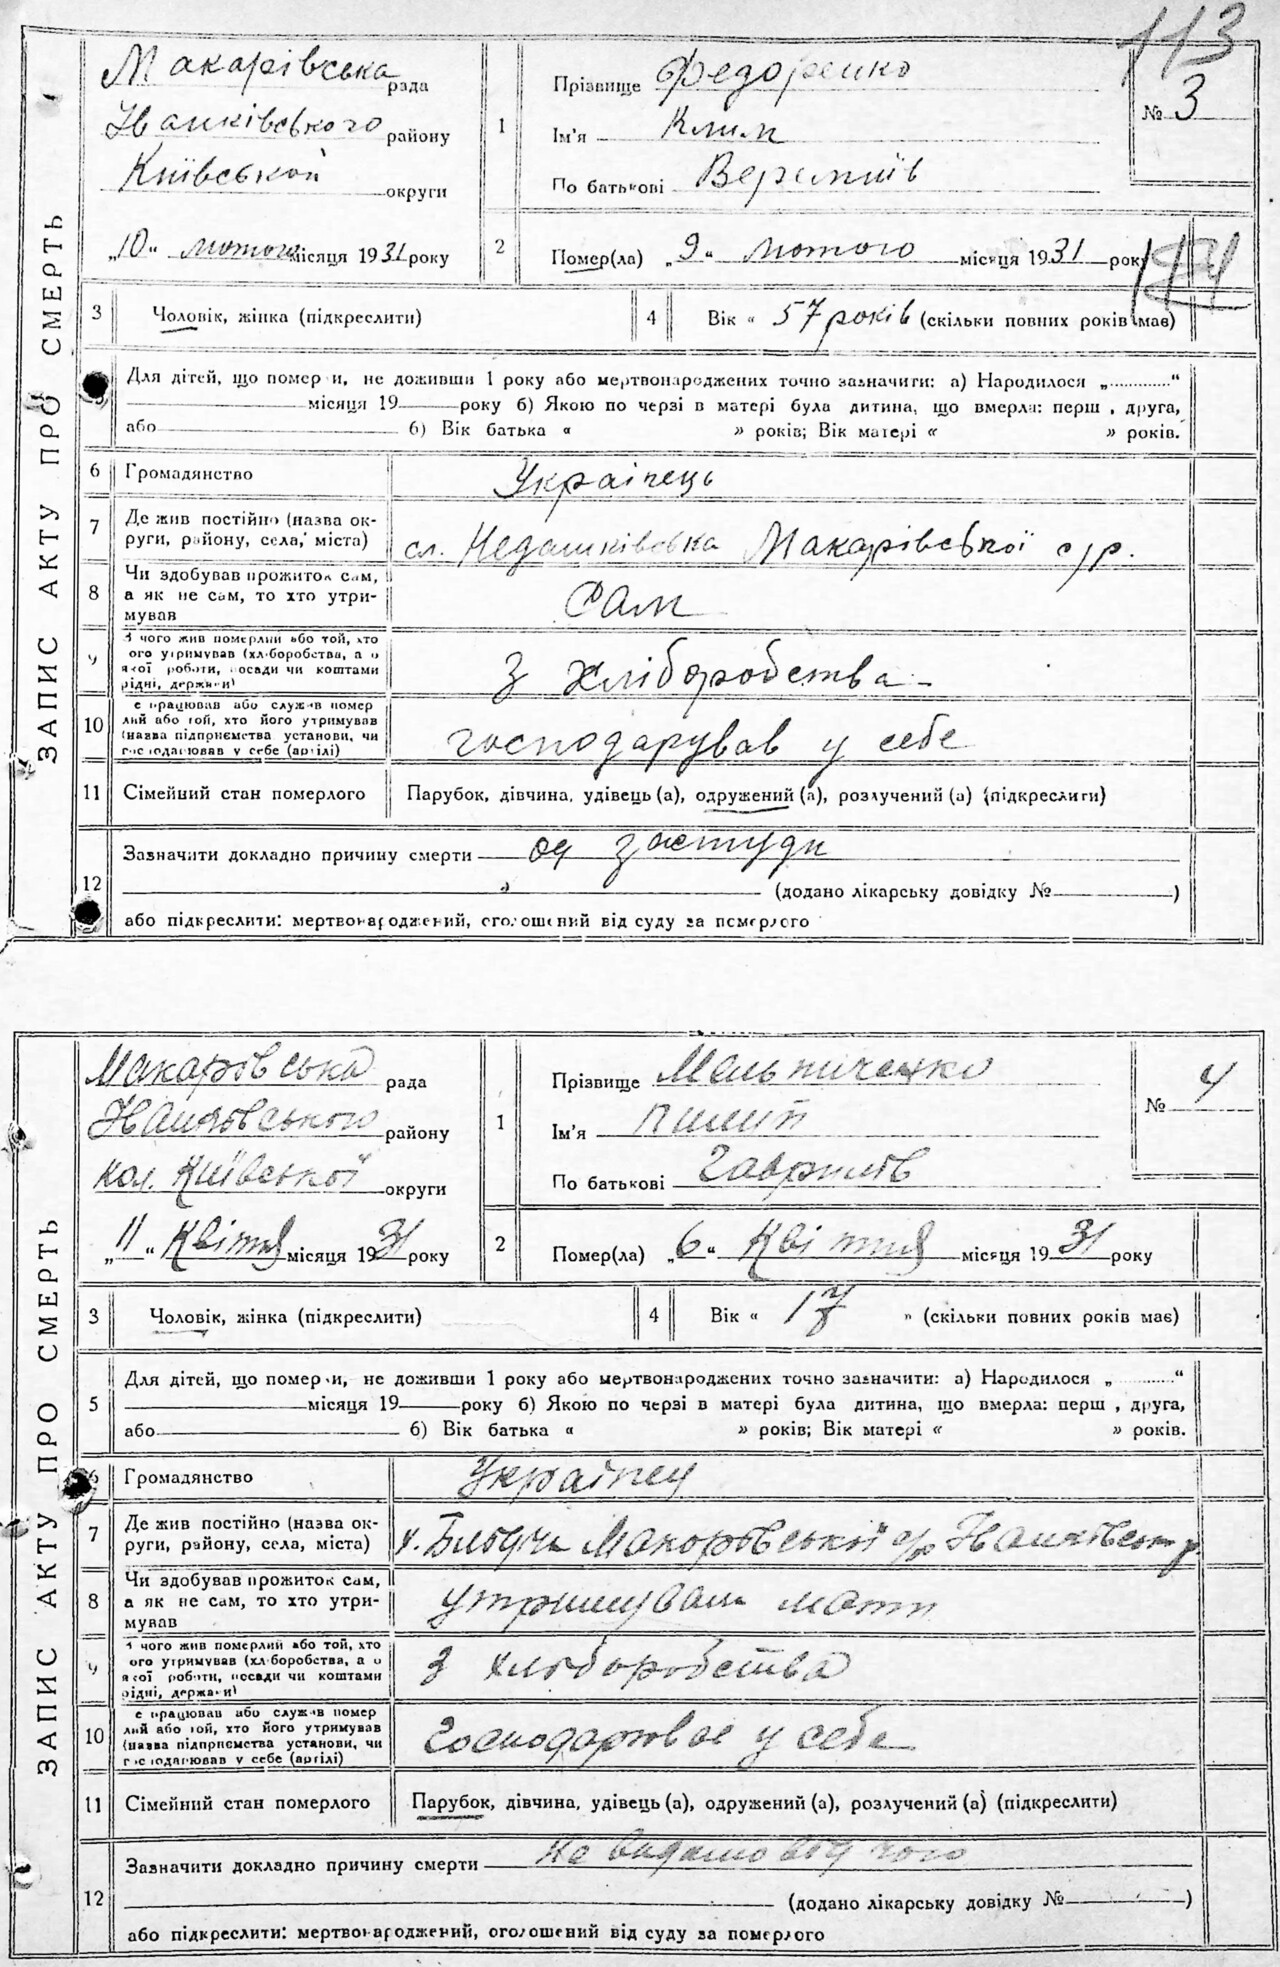 113
ЗАПИС АКТУ ПРО СМЕРТЬ
Макарівська рада
Іванківського району
Київської округи
„10“ лютого місяця 1931 року
1
Прізвище Федоренко
Ім'я Клим
По батькові Веремиїв
№ 3
2
Помер(ла) „9“ лютого місяця 1931 року
3
Чоловік, жінка (підкреслити)
4
Вік « 57 років (скільки повних років має)
Для дітей, що померли, не доживши 1 року або мертвонароджених точно зазначити: а) Народилося „ “
місяця 19 року б) Якою по черзі в матері була дитина, що вмерла: перш , друга,
або б) Вік батька « » років; Вік матері « » років.
6
Громадянство Українець
7
Де жив постійно (назва ок-
руги, району, села, міста) сл. Недашківська Макарівської с/р.
8
Чи здобував прожиток сам,
а як не сам, то хто утри-
мував Сам
9
З чого жив померлий або той, хто
ого утримував (хліборобства, а о
якої роботи, посади чи коштами
рідні, держави) З хліборобства
10
е працював або служив помер
лий або той, хто його утримував
(назва підприємства установи, чи
господарював у себе (артілі) господарував у себе
11
Сімейний стан померлого
Парубок, дівчина, удівець (а), одружений (а), розлучений (а) (підкреслити)
12
Зазначити докладно причину смерти од застуди
(додано лікарську довідку № )
або підкреслити: мертвонароджений, оголошений від суду за померлого
ЗАПИС АКТУ ПРО СМЕРТЬ
Макарівська рада
Іванківського району
кол. Київської округи
„11“ Квітня місяця 1931 року
1
Прізвище Мельниченко
Ім'я Пилип
По батькові Гаврилів
№ 4
2
Помер(ла) „6“ Квітня місяця 1931 року
3
Чоловік, жінка (підкреслити)
4
Вік « 17 » (скільки повних років має)
5
Для дітей, що померли, не доживши 1 року або мертвонароджених точно зазначити: а) Народилося „ “
місяця 19 року б) Якою по черзі в матері була дитина, що вмерла: перш , друга,
або б) Вік батька « » років; Вік матері « » років.
6
Громадянство Українец
7
Де жив постійно (назва ок-
руги, району, села, міста) Макарівської с/р
8
Чи здобував прожиток сам,
а як не сам, то хто утри-
мував утримувала мати
9
З чого жив померлий або той, хто
ого утримував (хліборобства, а о
якої роботи, посади чи коштами
рідні, держави) З хліборобства
10
е працював або служив помер
лий або той, хто його утримував
(назва підприємства установи, чи
господарював у себе (артілі) у себе
11
Сімейний стан померлого
Парубок, дівчина, удівець (а), одружений (а), розлучений (а) (підкреслити)
12
Зазначити докладно причину смерти не видомо від чого
(додано лікарську довідку № )
або підкреслити: мертвонароджений, оголошений від суду за померлого